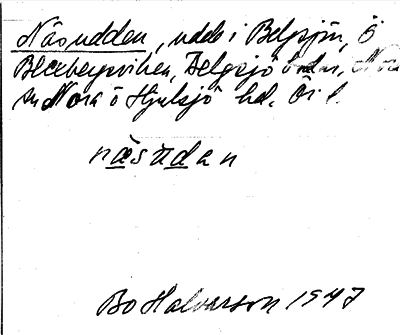 Näsudden, udde i Belgsjön, Ö
Bleckbergsviken, Belgsjö bodar, Nora
sn Nora o Hjulsjö hd. Ör. l.
näsudan
Bo Halvarson 1947